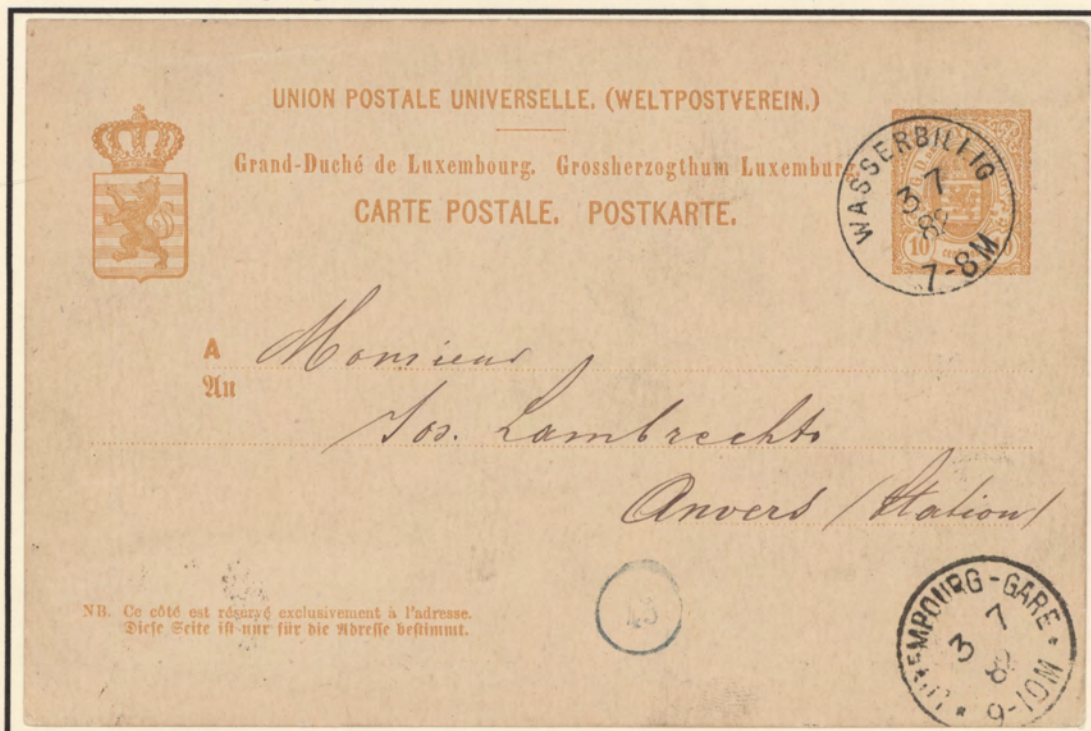 UNION POSTALE UNIVERSELLE. (WELTPOSTVEREIN.)
Grand-Duché de Luxembourg. Grossherzogthum Luxemburg.
CARTE POSTALE. POSTKARTE.
WASSERBILLIG
3 7
82
7-8M
10
A Monsieur
An
Jos. Lambrechts
Anvers (Station)
NB. Ce côté est réservé exclusivement à l'adresse.
Diese Seite ist nur für die Adresse bestimmt.
LUXEMBOURG-GARE
3 7
82
9-10M